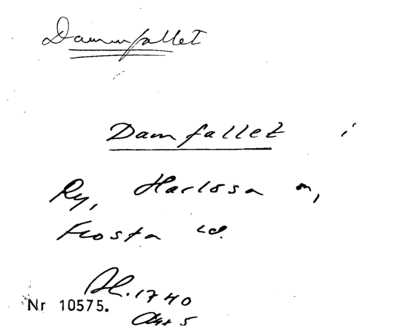 Dammfallet
Damfallet i
Ry, Harlösa sn,
Frosta hd.
Nr 10575.